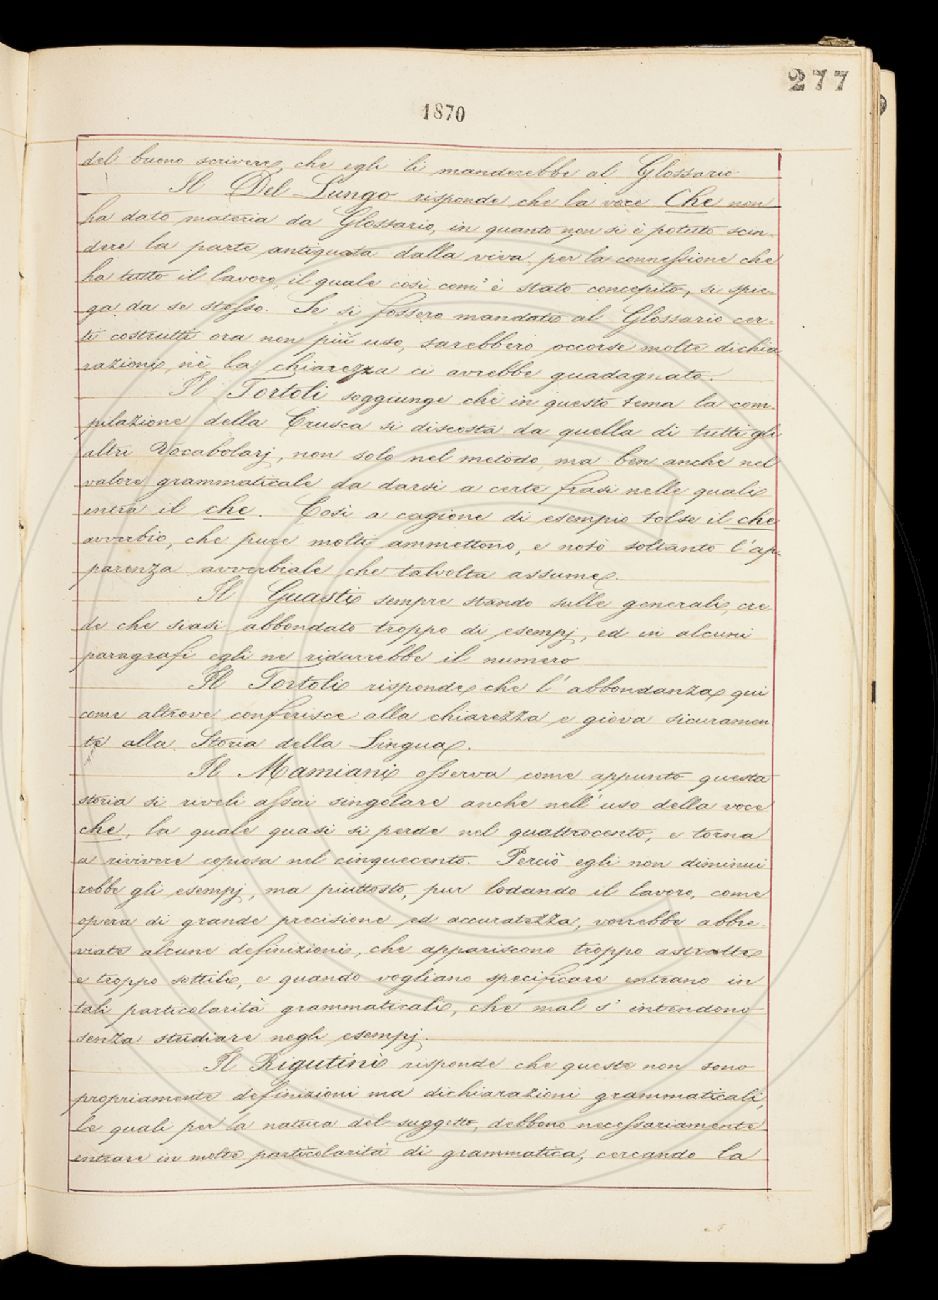 277
1870
del buono scrivere, che egli li manderebbe al Glossario
Il Del Lungo risponde che la voce Che non
ha dato materia da Glossario, in quanto non si è potuto scin-
dere la parte antiquata dalla viva, per la connessione che
ha tutto il lavoro, il quale così com'è stato concepito, si spie-
ga da se stesso. Se si fossero mandate al Glossario cer-
ti costrutti ora non più uso, sarebbero occorse molte dichia
razioni, nè la chiarezza ci avrebbe guadagnato.
Il Tortoli soggiunge che in questo tema la com-
pilazione della Crusca si discosta da quella di tutti gli
altri Vocabolarj, non solo nel metodo, ma ben anche nel
valore grammaticale da darsi a certe frasi nelle quali
entra il che. Così a cagione di esempio tolse il che
avverbio, che pure molti ammettono, e notò soltanto l'ap-
parenza avverbiale che talvolta assume.
Il Guasti sempre stando sulle generali, cre
de che siasi abbondato troppo di esempj, ed in alcuni
paragrafi egli ne ridurrebbe il numero
Il Tortoli risponde che l'abbondanza qui
come altrove conferisce alla chiarezza e giova sicuramen
te alla Storia della Lingua.
Il Mamiani osserva come appunto questa
storia si riveli assai singolare anche nell'uso della voce
che, la quale quasi si perde nel quattrocento, e torna
a rivivere copiosa nel cinquecento. Perciò egli non diminui
rebbe gli esempj, ma piuttosto, pur lodando il lavoro, come
opera di grande precisione ed accuratezza, vorrebbe abbre-
viate alcune definizioni, che appariscono troppo astratte
e troppo sottili, e quando vogliano specificare entrano in
tali particolarità grammaticali, che mal s'intendono
senza studiare negli esempj.
Il Rigutini risponde che queste non sono
propriamente definizioni ma dichiarazioni grammaticali,
le quali per la natura del suggetto, debbono necessariamente
entrare in molte particolarità di grammatica, cercando la